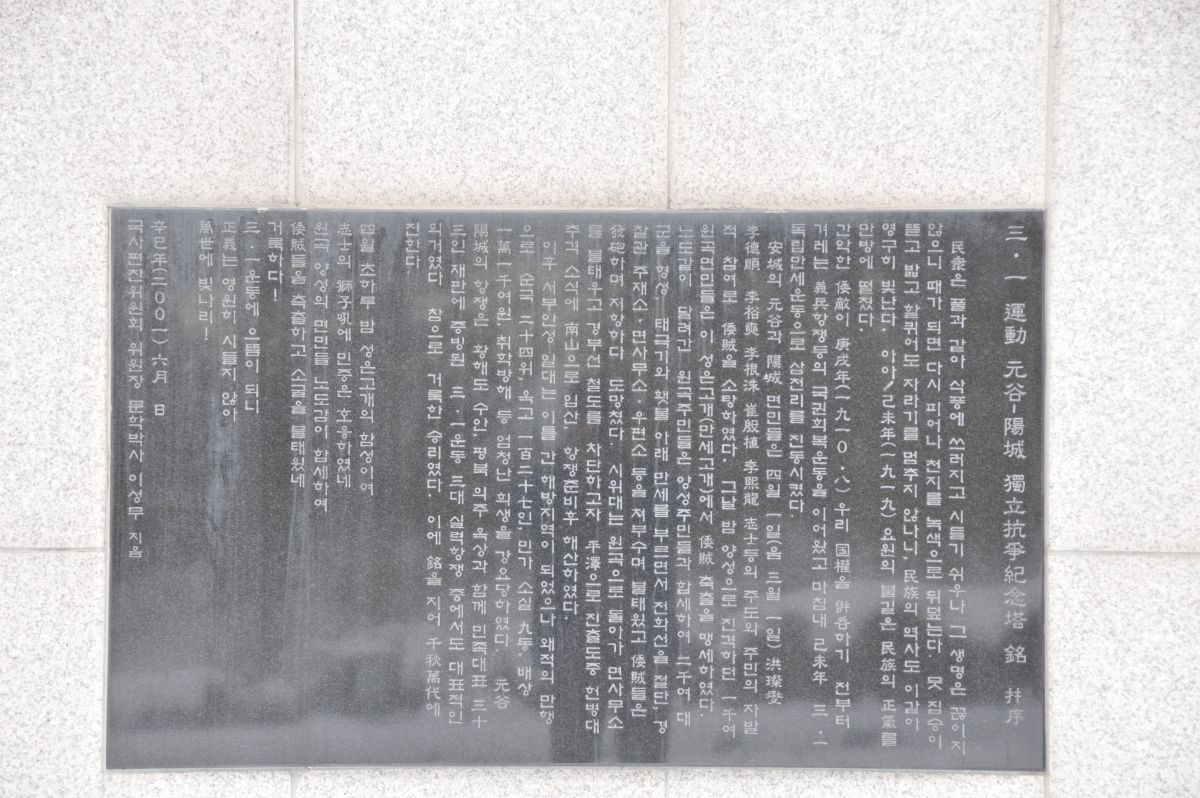 三·一 運動 元谷-陽城 獨立抗爭紀念塔 銘 幷序
民衆은 풀과 같아 삭풍에 쓰러지고 시들기 쉬우나 그 생명은 끊이지
않으니 때가 되면 다시 피어나 천지를 녹색으로 뒤덮는다. 뭇 짐승이
뜯고 밟고 할퀴어도 자라기를 멈추지 않나니, 民族의 역사도 이같아
영구히 빛난다. 아아! 己未年(一九一九) 요원의 불길은 民族의 正氣를
만방에 떨쳤다.
간악한 倭敵이 庚戌年(一九一0.八) 우리 国權을 倂呑하기 전부터
겨레는 義民항쟁등의 국권회복운동을 이어왔고 마침내 己未年 三.一
독립만세운동으로 삼천리를 진동시켰다.
安城의 元谷과 陽城 면민들은 四월 一일(음 三월 一일) 洪璨燮
李德順 李裕奭 李根洙 崔殷植 李熙龍 志士등의 주도와 주민의 자발
적 참여로 倭賊을 소탕하였다. 그날 밤 양성으로 진격하던 一千여
원곡면민들은 이 성은고개(만세고개)에서 倭賊 축출을 맹세하였다.
노도같이 달려간 원곡주민들은 양성주민들과 합세하여 二千여 대
군을 형성, 태극기와 횃불 아래 만세를 부르면서 전화선을 절단, 경
찰관 주재소·면사무소·우편소 등을 쳐부수며 불태웠고 倭賊들은
發砲하며 저항하다 도망쳤다. 시위대는 원곡으로 돌아가 면사무소
를 불태우고 경부선 철도를 차단하고자 平澤으로 진출도중 헌병대
추격 소식에 南山으로 입산, 항쟁준비후 해산하였다.
이후 서부안성 일대는 이틀 간 해방지역이 되었으나 왜적의 만행
으로 순국 二十四위, 옥고 一百二十七인, 민가 소실 九동, 배상
一萬一千여원, 취학방해 등 엄청난 희생을 강요당하였다. 元谷
陽城의 항쟁은 황해도 수안, 평북 의주 옥상과 함께 민족대표 三十
三인 재판에 증빙된 三.一운동 三대 실력항쟁 중에서도 대표적인
의거였다. 참으로 거룩한 승리였다. 이에 銘을 지어 千秋萬代에
전한다.
四월 초하루 밤 성은고개의 함성이여
志士의 獅子吼에 민중은 호응하였네
원곡·양성의 면민들 노도같이 합세하여
倭賊들을 축출하고 소굴을 불태웠네
거룩하다!
三.一운동에 으뜸이 되니
正義는 영원히 시들지 않아
萬世에 빛나리!
辛巳年(二00一) 六月 日
국사편찬위원회 위원장 문학박사 이성무 지음